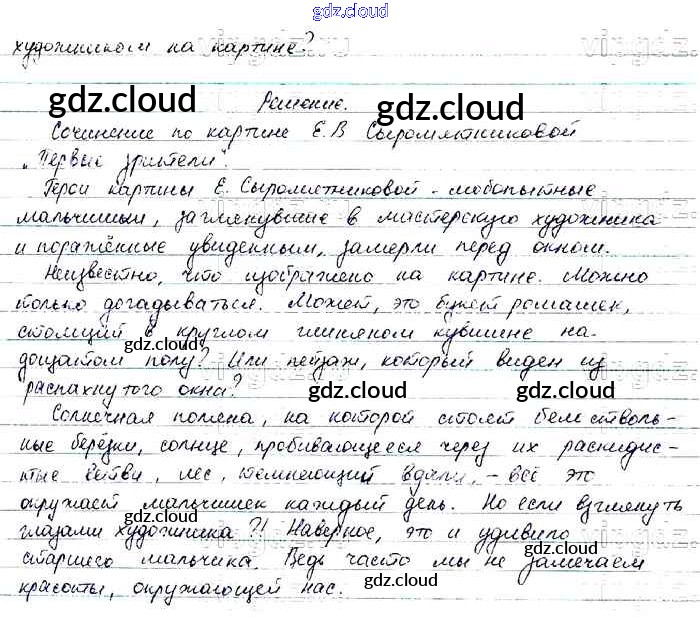 gdz.cloud
художником на картине?
gdz.cloud gdz.cloud
Решение.
Сочинение по картине Е.В Сыромятниковой
„Первые зрители".
Герои картины Е. Сыромятниковой - любопытные
мальчишки, заглянувшие в мастерскую художника
и поражённые увиденным, замерли перед окном.
Неизвестно, что изображено на картине. Можно
только догадываться. Может, это букет ромашек,
стоящий в круглом глиняном кувшине на
gdz.cloud
дощатом полу? Или пейзаж, который виден из
распахнутого окна?
gdz.cloud gdz.cloud
Солнечная поляна, на которой стоят белостволь-
ные берёзки, солнце, пробивающееся через их раскидис-
тые ветви, лес, темнеющий вдали, - всё это
окружает мальчишек каждый день. Но если взглянуть
глазами художника?! Наверное, это и удивило
gdz.cloud gdz.cloud
старшего мальчика. Ведь часто мы не замечаем
красоты, окружающей нас.
gdz.cloud